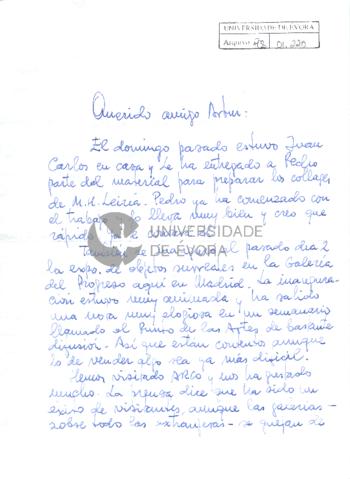 UNIVERSIDADE DE ÉVORA
Arquivo
Querido amigo Artur:
El domingo pasado estuvo Juan
Carlos en casa y le ha entregado a Pedro
parte del material para preparar los collages
de M. H. Leiria. Pedro ya ha comenzado con
el trabajo lo lleva muy bien y creo que
UNIVERSIDADE
DE ÉVORA
pasado dia 2
la expo. de objetos surreales en la Galería
del Progreso aquí en Madrid. La inaugura-
ción estuvo muy animada y ha salido
una nota muy elogiosa en un semanario
llamado el Punto de las Artes de bastante
difusión. Así que estan contentos aunque
lo de vender algo sea ya más difícil.
Hemos visitado ARCO y nos ha gustado
mucho. La prensa dice que ha sido un
éxito de visitantes, aunque las galerias-
-sobre todo las extranjeras- se quejan de